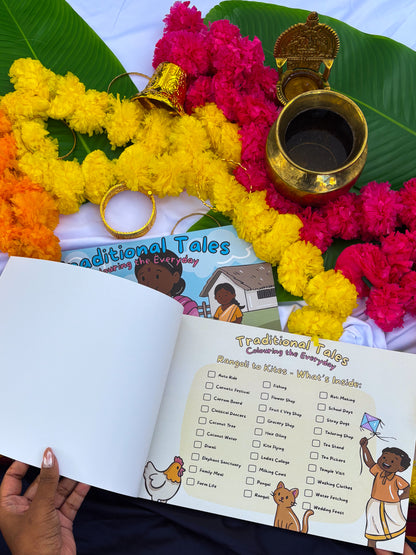 Traditional Tales
Colouring the Everyday
Traditional Tales
Colouring the Everyday
Rangoli to Kites - What's Inside:
Auto Ride
Carnatic Festival
Carrom Board
Classical Dancers
Coconut Tree
Coconut Water
Diwali
Elephant Sanctuary
Family Meal
Farm Life
Fishing
Flower Shop
Fruit & Veg Shop
Grocery Shop
Hair Oiling
Kite Flying
Ladies College
Milking Cows
Pongal
Rangoli
Roti Making
School Days
Stray Dogs
Tailoring Shop
Tea Stand
Tea Picking
Temple Visit
Washing Clothes
Water Fetching
Wedding Feast